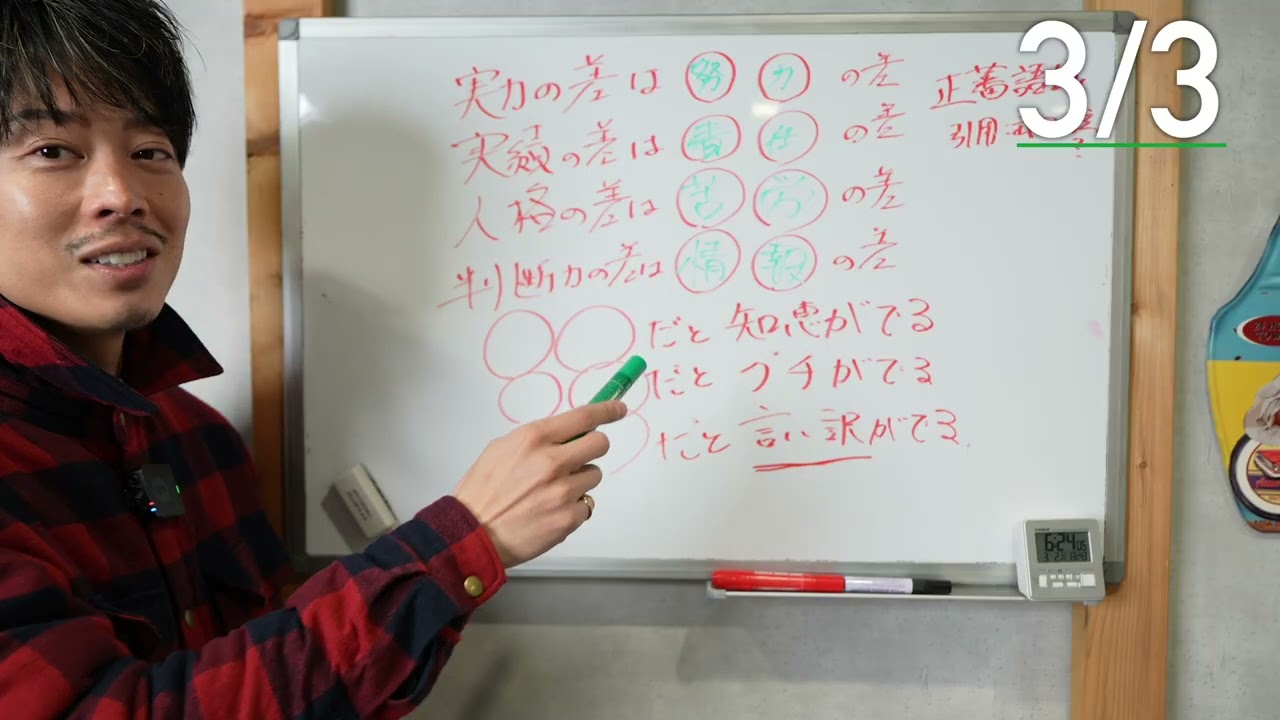 3/3
実力の差は努力の差
実績の差は責任の差
人格の差は苦労の差
判断力の差は情報の差
だと知恵がでる
だとグチがでる
だと言い訳がでる
引用
6:24